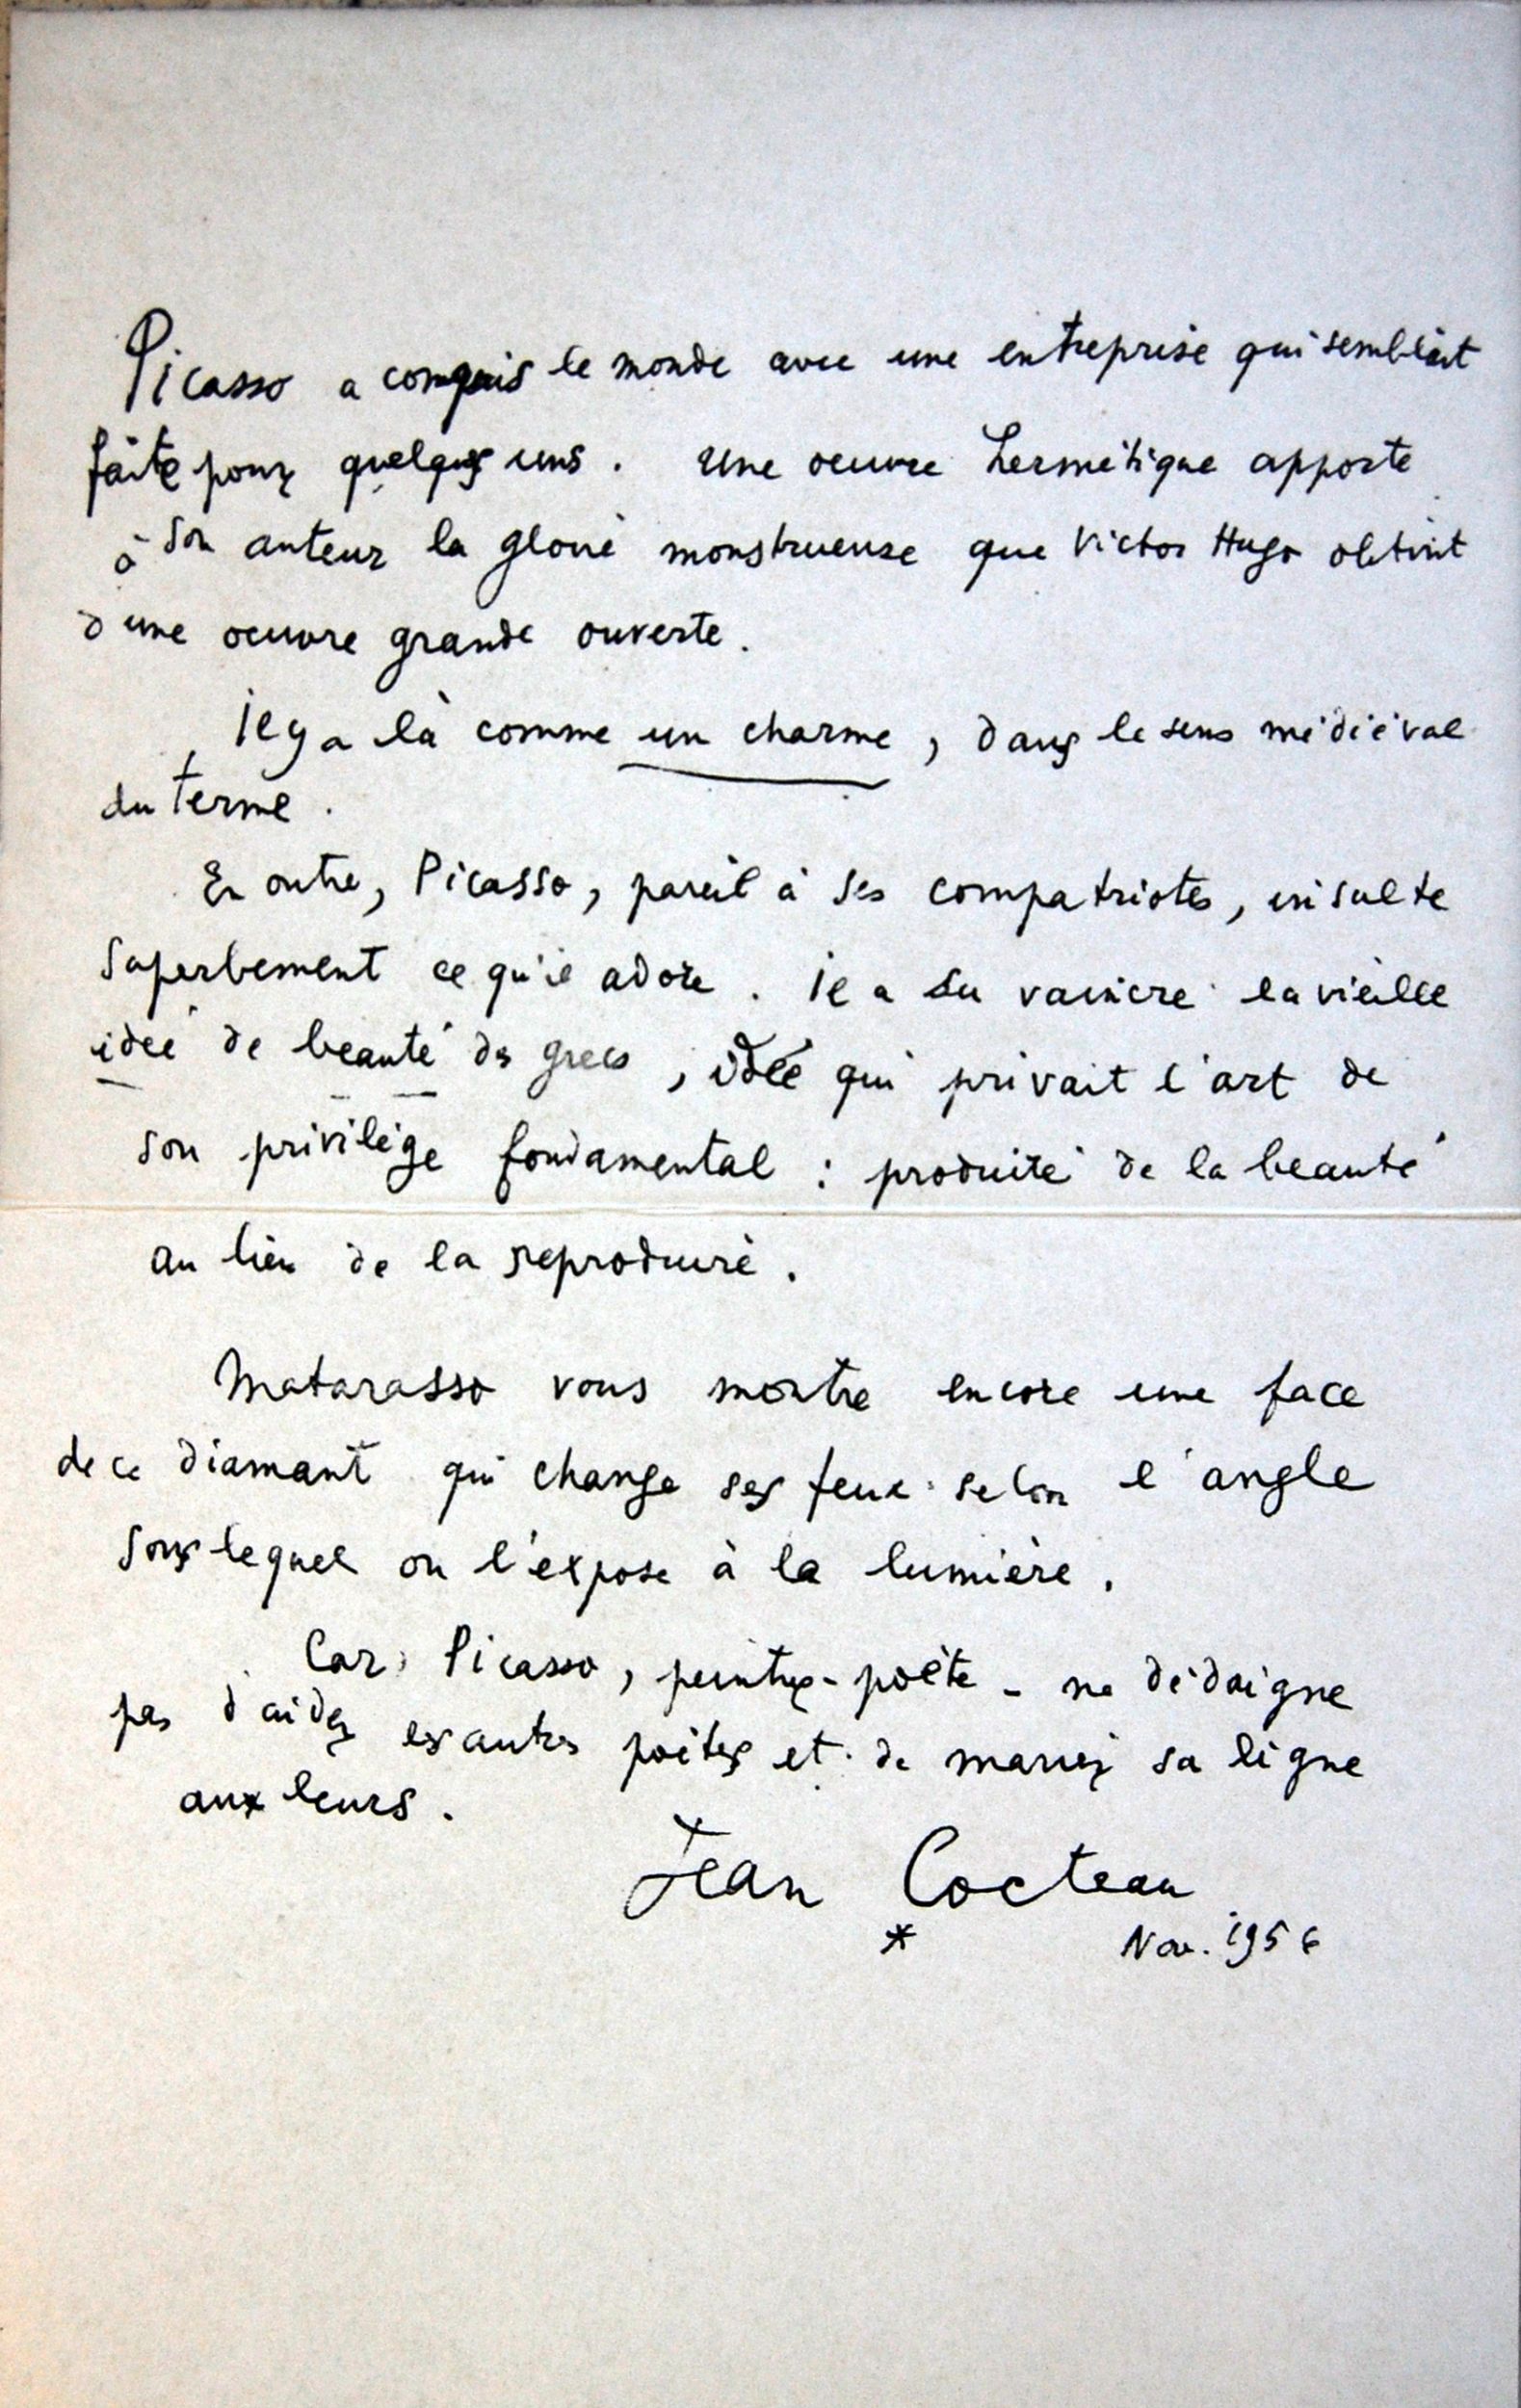 Picasso a conquis le monde avec une entreprise qui semblait
faite pour quelques uns. Une oeuvre hermétique apporte
à son auteur la gloire monstrueuse que Victor Hugo obtint
d'une oeuvre grande ouverte.
Il y a là comme un charme, dans le sens médiéval
du terme.
En outre, Picasso, pareil à ses compatriotes, insulte
superbement ce qu'il adore. Il a su vaincre la vieille
idée de beauté des grecs, idée qui privait l'art de
son privilège fondamental : produire de la beauté
au lieu de la reproduire.
Matarasso vous montre encore une face
de ce diamant qui change ses feux selon l'angle
sous lequel on l'expose à la lumière.
Car Picasso, peintre-poète - ne dédaigne
pas d'aider les autres poètes et de marier sa ligne
aux leurs.
Jean Cocteau
* Nov. 1956